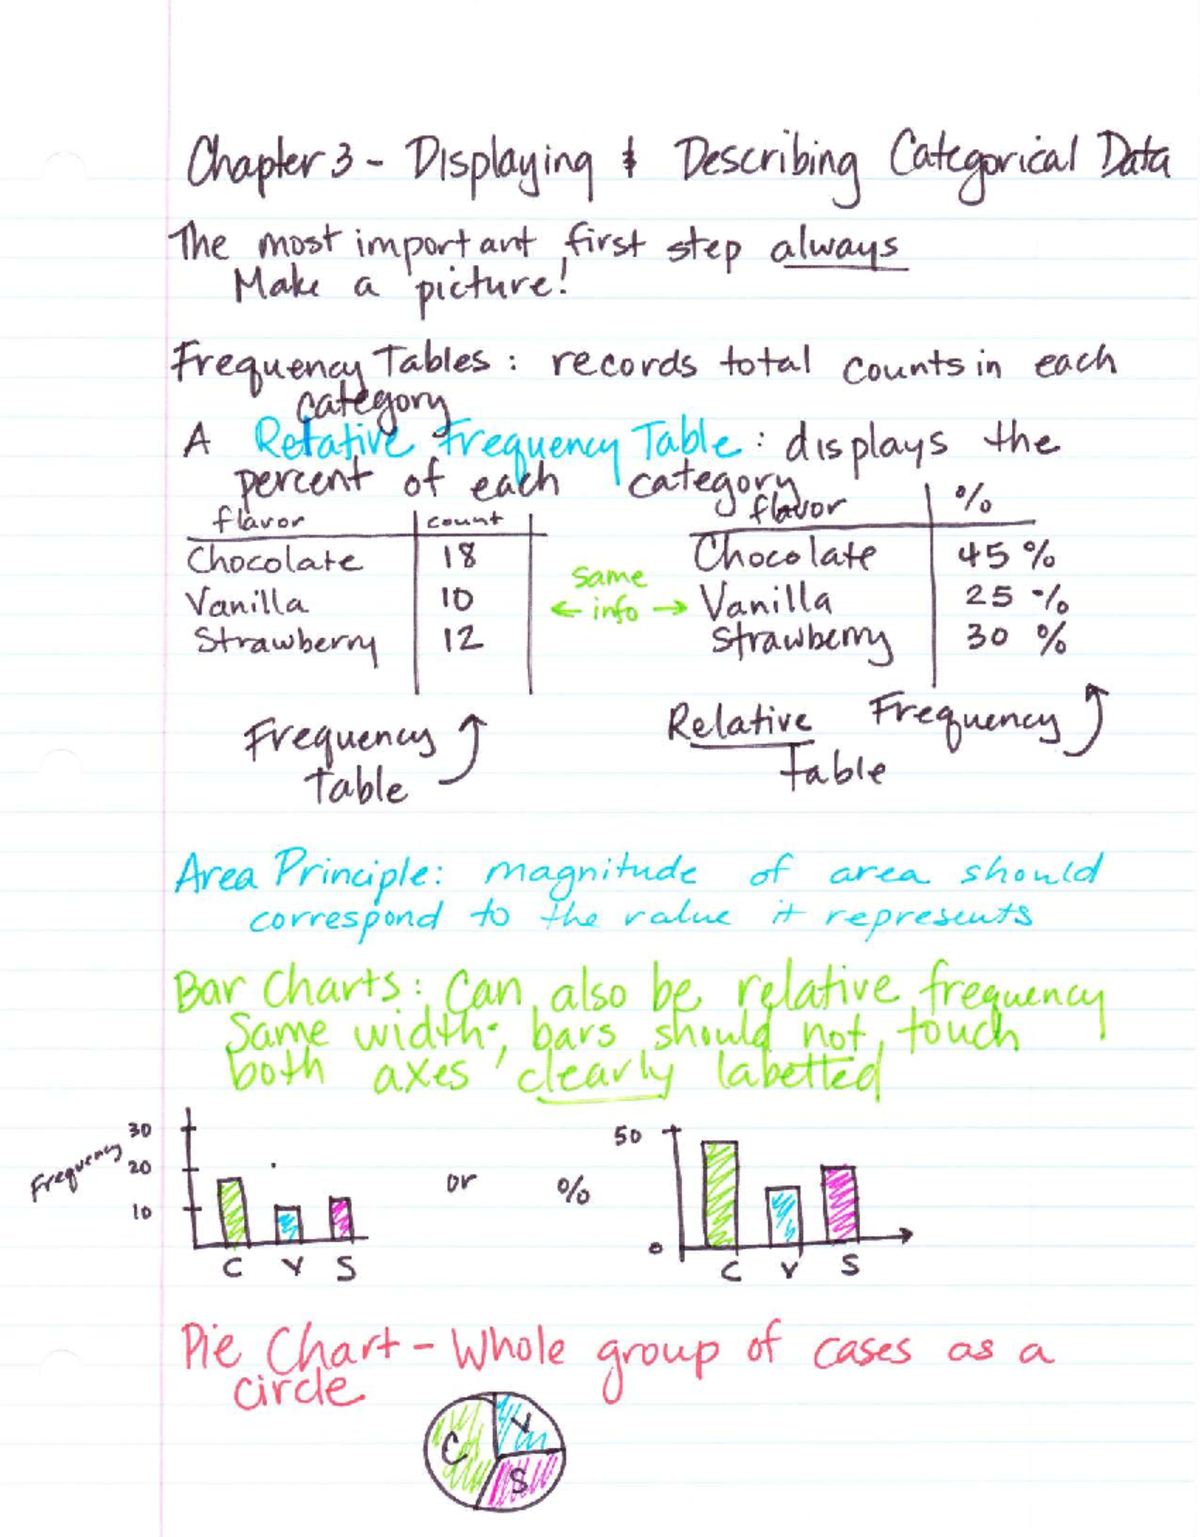 Chapter 3 - Displaying & Describing Categorical Data
The most important first step always
Make a picture!
Frequency Tables: records total counts in each
category
A Relative Frequency Table: displays the
percent of each category
flavor count
Chocolate 18
Vanilla 10
Strawberry 12
same
← info →
flavor %
Chocolate 45 %
Vanilla 25 %
Strawberry 30 %
Frequency
Table
Relative Frequency
Table
Area Principle: magnitude of area should
correspond to the value it represents
Bar Charts: Can also be relative frequency
Same width; bars should not touch
both axes clearly labelled
Frequency
30
20
10
C V S
or
%
50
0
C V S
Pie Chart - Whole group of cases as a
circle
C V
S